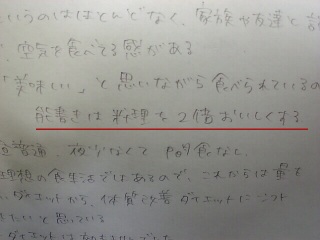 いうのはほとんどなく、家族や友達と
、空気を食べてる感がある
「美味しい」と思いながら食べられているの
能書きは料理を2倍おいしくする
普通、夜少なくて 間食なし。
理想の食生活ではあるので、これからは量も
ダイエットから、体質改善ダイエットにシフト
たいと思っている